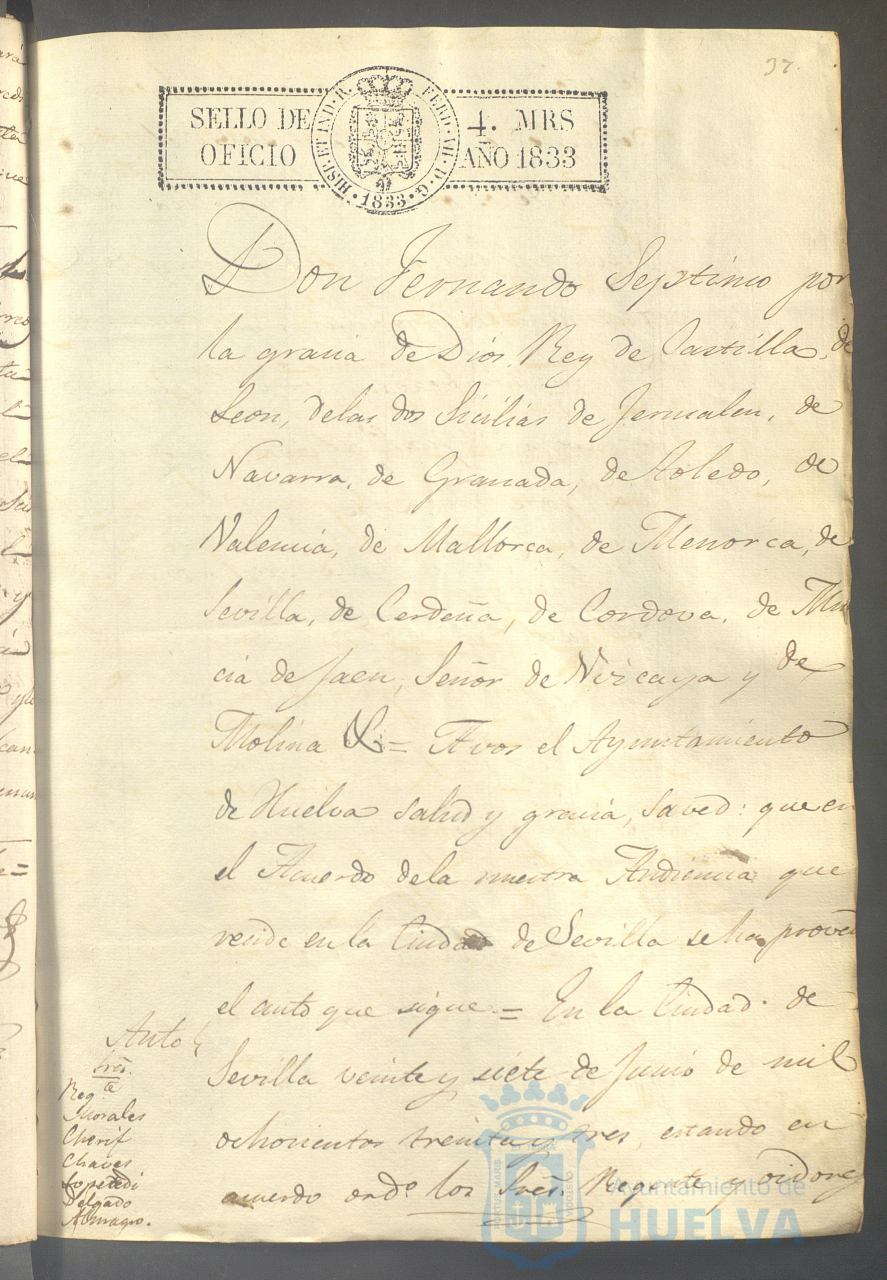 37.
SELLO DE OFICIO
HISP. ET IND. R. FERD. VII. D. G. 1833
4. MRS AÑO 1833
Don Fernando Septimo por
la gracia de Dios, Rey de Castilla, de
Leon, delas dos Sicilias de Jerusalen, de
Navarra, de Granada, de Toledo, de
Valencia, de Mallorca, de Menorca, de
Sevilla, de Cerdeña, de Cordova, de Mur
cia de Jaen, Señor de Vizcaya y de
Molina &= A vos el Ayuntamiento
de Huelva salud y gracia, saved: que en
el Acuerdo dela nuestra Audiencia que
reside en la Ciudad de Sevilla se ha proveido
el auto que sigue = En la Ciudad de
Sevilla veinte y siete de Junio de mil
ochocientos treinta y tres, estando en
acuerdo ordº los Sres. Regente y oidores
Auto
Sres.
Regte
Morales
Cherif
Chaves
Lopetedi
Delgado
Almagro.
Ayuntamiento de
HUELVA